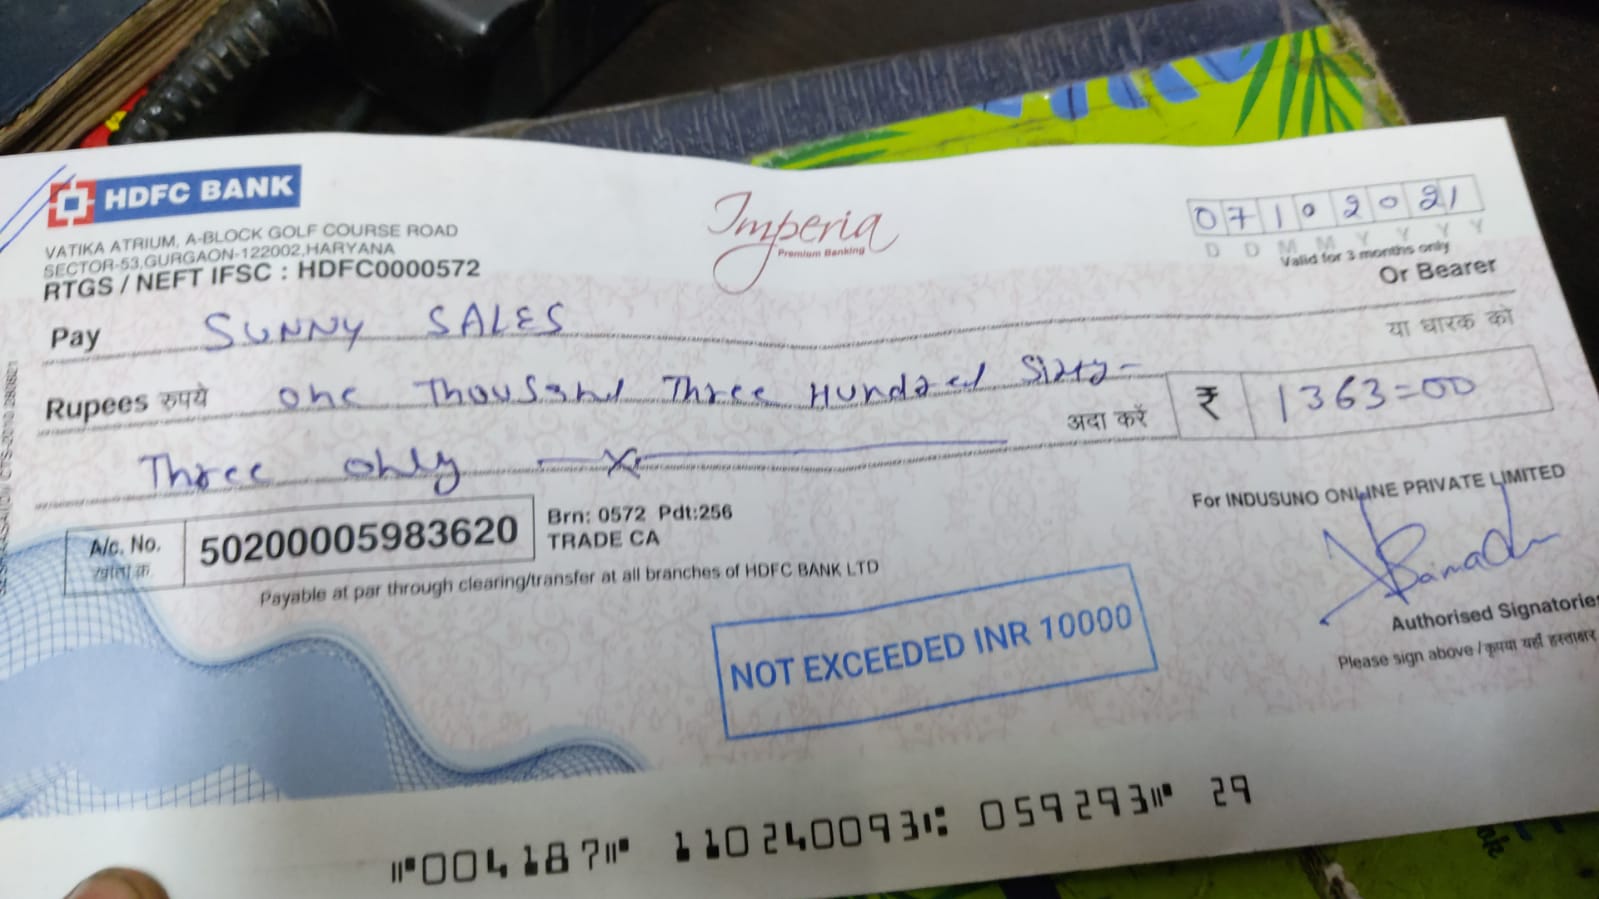 HDFC BANK
VATIKA ATRIUM, A-BLOCK GOLF COURSE ROAD
SECTOR-53, GURGAON-122002, HARYANA
RTGS / NEFT IFSC : HDFC0000572
Imperia
Premium Banking
07102021
D D M M Y Y Y Y
Valid for 3 months only
Or Bearer
या धारक को
Pay SUNNY SALES
Rupees रुपये One Thousand Three Hundred Sixty-
अदा करें ₹ 1363=00
Three only
A/c. No. 50200005983620
Brn: 0572 Pdt:256
TRADE CA
Payable at par through clearing/transfer at all branches of HDFC BANK LTD
For INDUSUNO ONLINE PRIVATE LIMITED
NOT EXCEEDED INR 10000
Authorised Signatories
Please sign above / कृपया यहाँ हस्ताक्षर
004187 110240093 059293 29